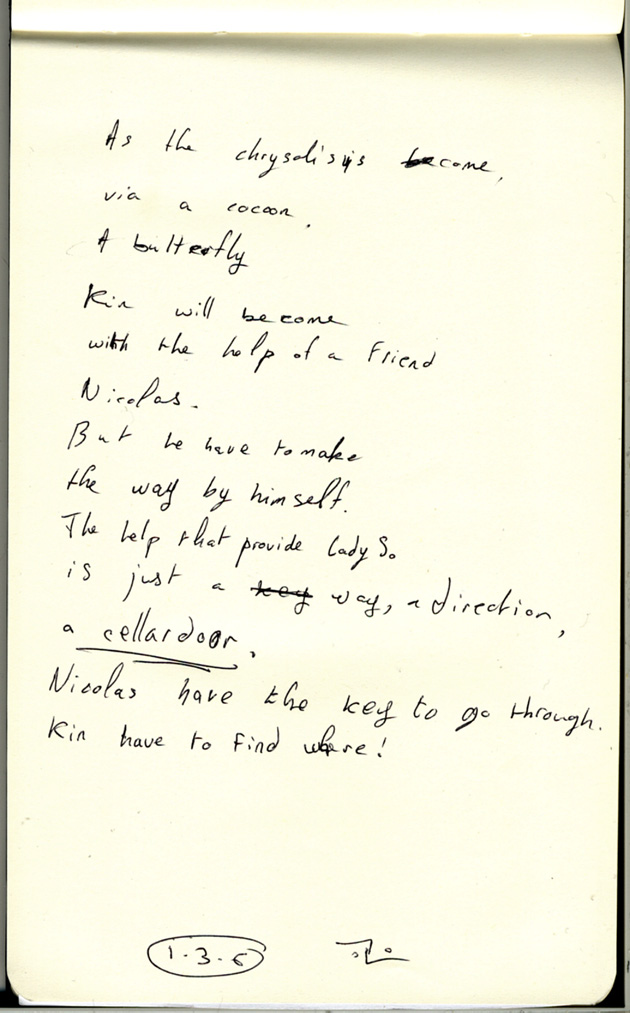 As the chrysalisis become,
via a cocoon,
A butterfly
Kin will become
with the help of a Friend
Nicolas.
But he have to make
the way by himself.
The help that provide Lady S.
is just a key way, a direction,
a cellardoor.
Nicolas have the key to go through.
Kin have to find where!
1.3.6